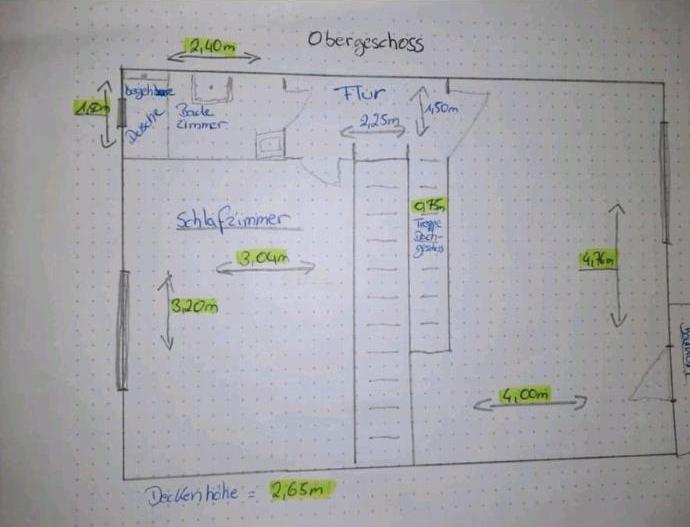 Obergeschoss
2,40m
begehbare
Dusche
Bade
zimmer
Flur
1,50m
2,25m
Schlafzimmer
0,75m
Treppe
Dach-
geschoss
3,04m
3,20m
4,76m
4,00m
Deckenhöhe = 2,65m